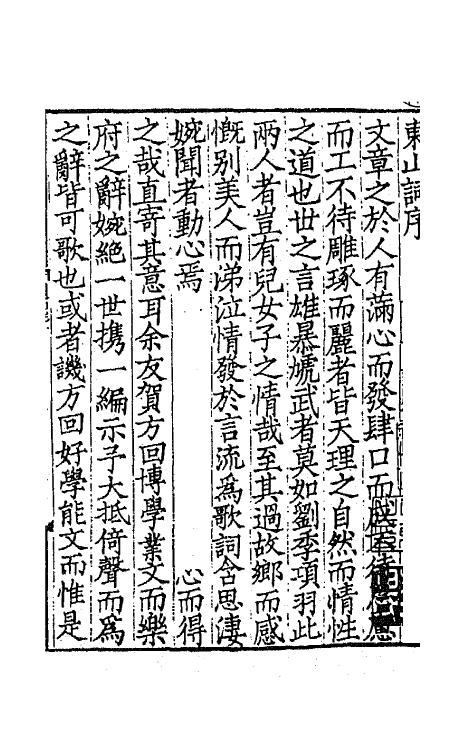 東山詞序
文章之於人有滿心而發肆口而成不待思慮
而工不待雕琢而麗者皆天理之自然而情性
之道也世之言雄暴虓武者莫如劉季項羽此
兩人者豈有兒女子之情哉至其過故鄉而感
慨别美人而涕泣情發於言流為歌詞含思淒
婉聞者動心焉 心而得
之哉直寄其意耳余友賀方回博學業文而樂
府之辭婉絶一世携一編示予大抵倚聲而為
之辭皆可歌也或者譏方回好學能文而惟是